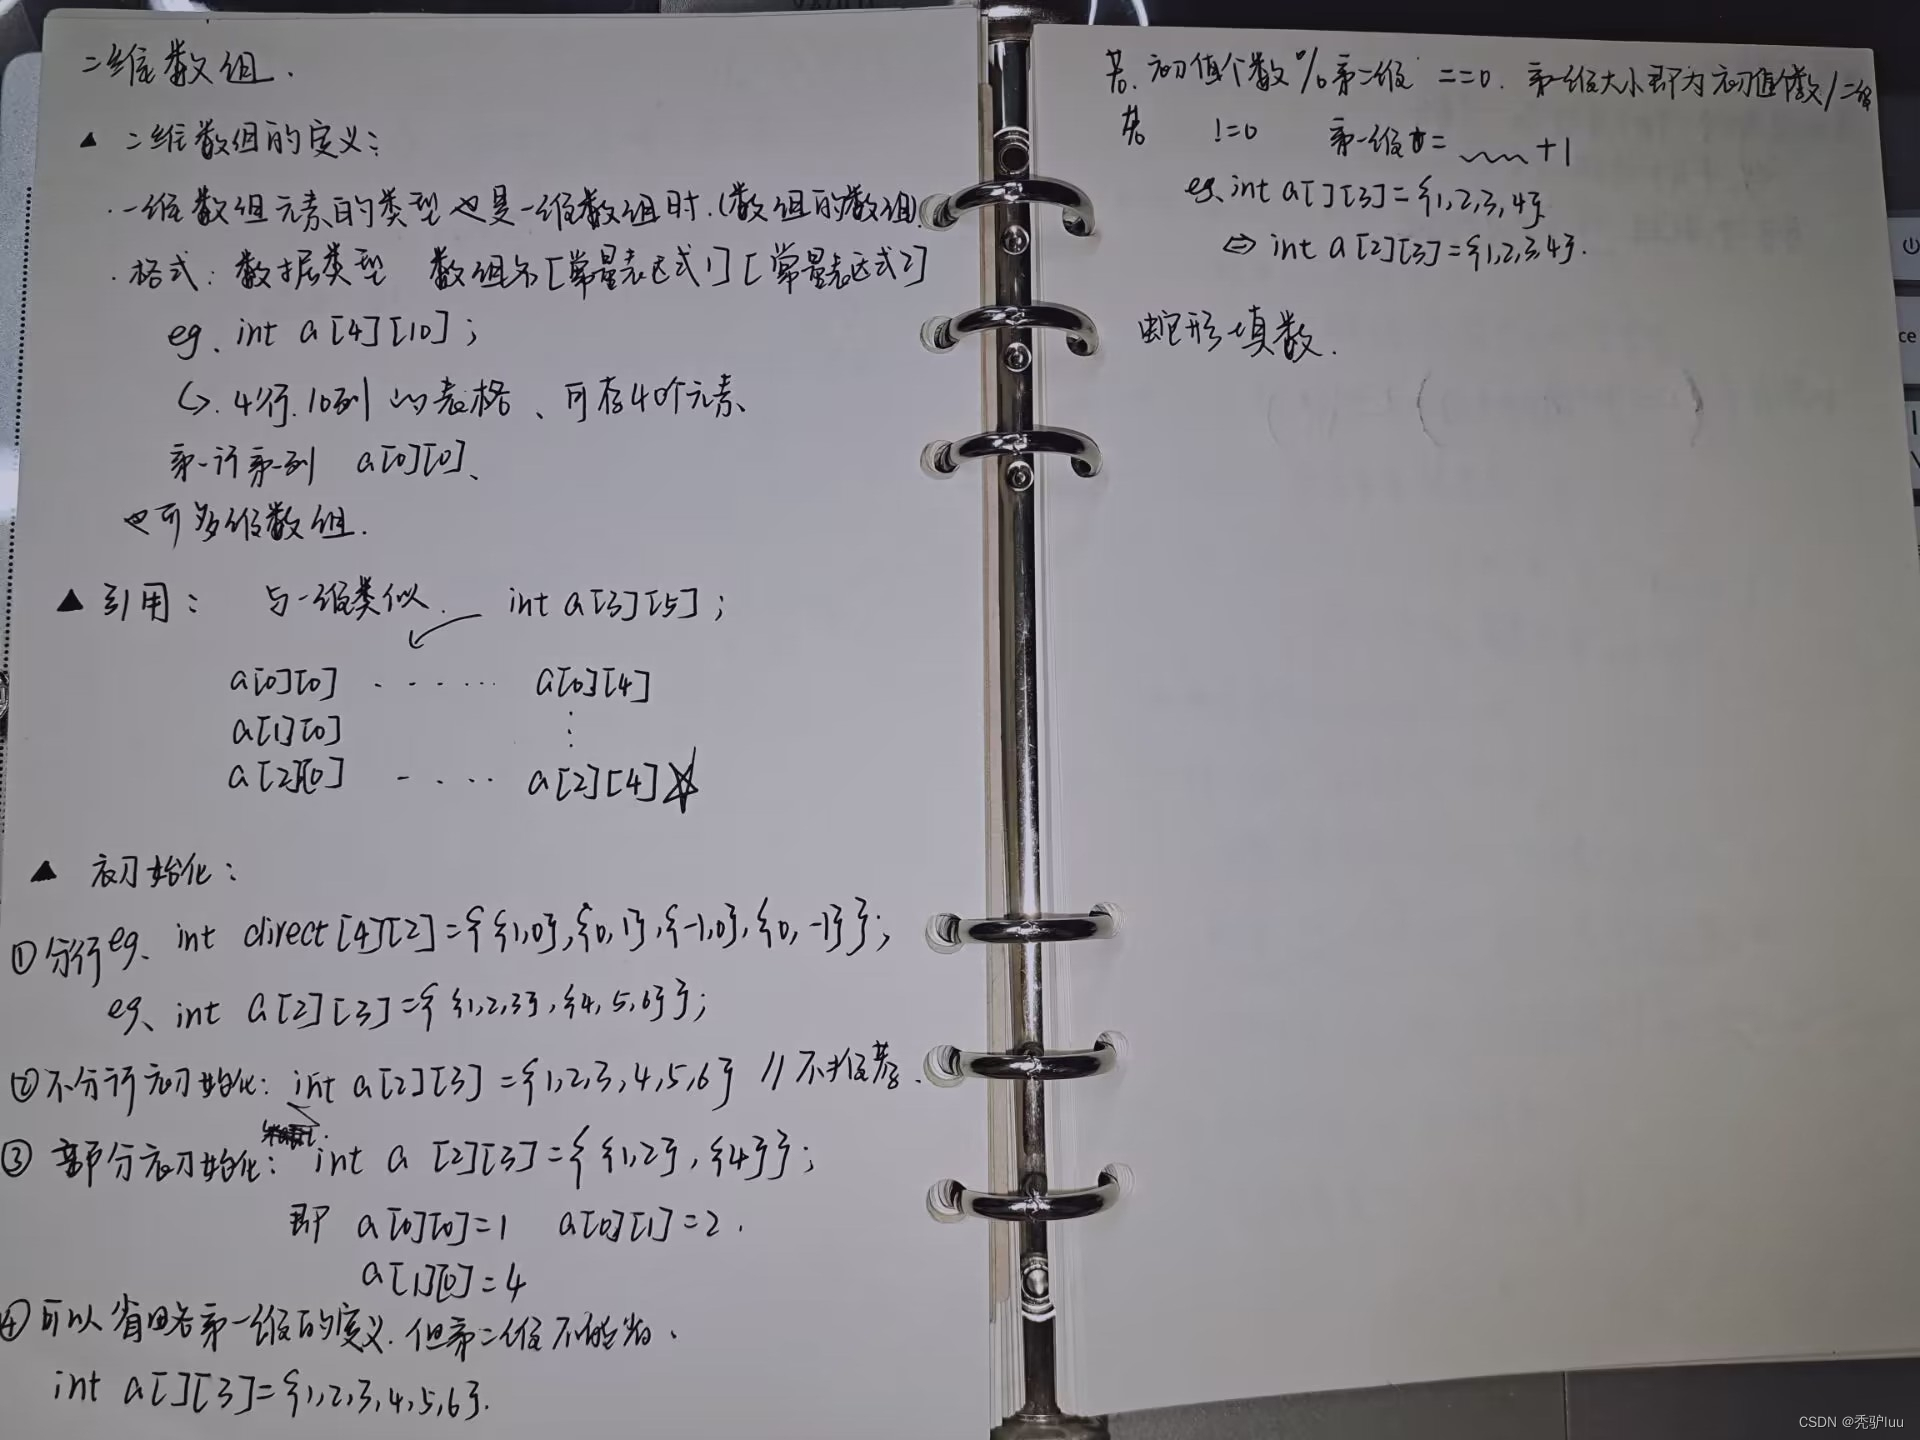 二维数组.
▲ 二维数组的定义:
· 一维数组元素的类型也是一维数组时.(数组的数组)
· 格式: 数据类型 数组名[常量表达式1][常量表达式2]
eg. int a[4][10];
↳ 4行.10列的表格、可存40个元素
第一行第一列 a[0][0]、
也可多维数组.
▲ 引用: 与一维类似. int a[3][5];
a[0][0] ...... a[0][4]
a[1][0] ⋮
a[2][0] - .... a[2][4]☆
▲ 初始化:
①分行 eg、int direct[4][2]={{1,0},{0,1},{-1,0},{0,-1}};
eg、int a[2][3]={{1,2,3},{4,5,6}};
②不分行初始化: int a[2][3]={1,2,3,4,5,6} //不推荐.
③部分初始化: int a[2][3]={{1,2},{4}};
即 a[0][0]=1 a[0][1]=2.
a[1][0]=4
④可以省略第一维的定义.但第二维不能省、
int a[][3]={1,2,3,4,5,6}.
若.初值个数%第二维 ==0. 第一维大小即为初值个数/二维
若 !=0 第一维 = +1
eg、int a[][3]={1,2,3,4}
⇔ int a[2][3]={1,2,3,4}.
蛇形填数.
CSDN @秃驴luu